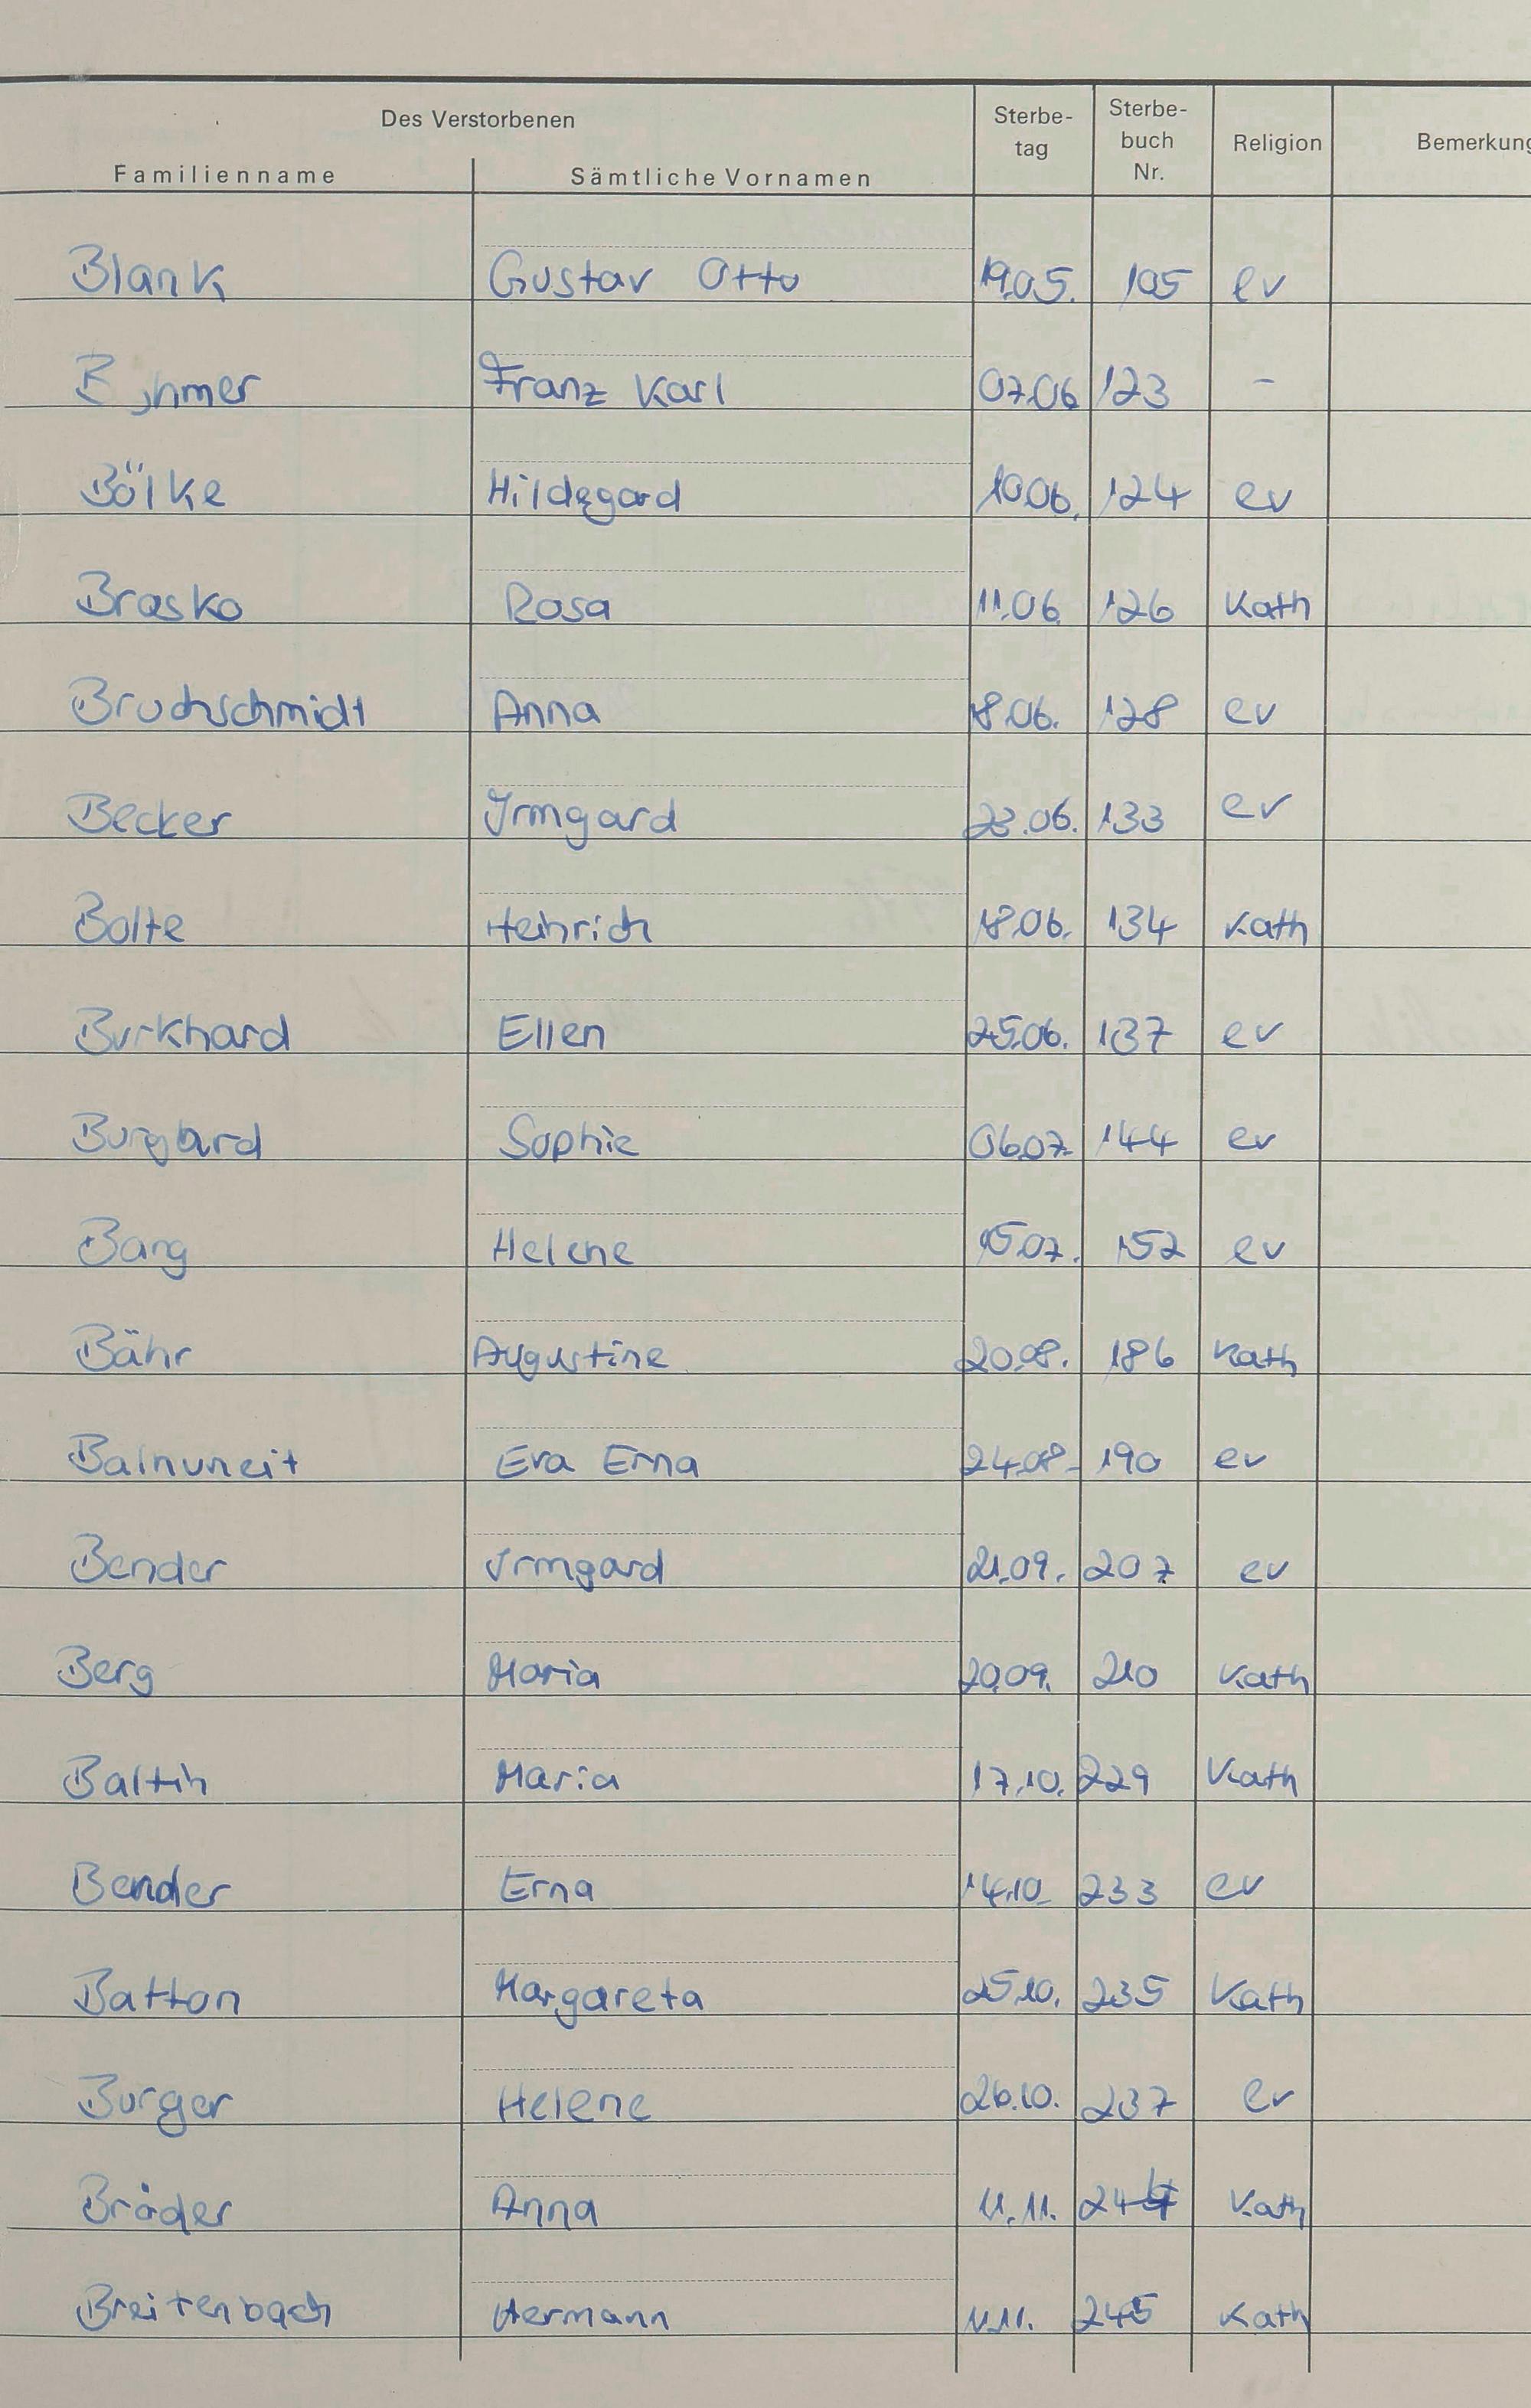 Des Verstorbenen
Familienname Sämtliche Vornamen Sterbe-tag Sterbe-buch Nr. Religion Bemerkung
Blank Gustav Otto 19.05. 105 ev
Franz Karl 07.06 123 -
Bölke Hildegard 10.06. 124 ev
Brasko Rosa 11.06. 126 Kath
Bruchschmidt Anna 18.06. 128 ev
Becker Irmgard 23.06. 133 ev
Bolte Heinrich 18.06. 134 Kath
Burkhard Ellen 25.06. 137 ev
Burgbard Sophie 06.07. 144 ev
Barg Helene 15.07. 152 ev
Bähr Augustine 20.08. 186 Kath
Balnuneit Eva Erna 24.08. 190 ev
Bender Irmgard 21.09. 207 ev
Berg Maria 20.09. 210 Kath
Baltin Maria 17.10. 229 Kath
Bender Erna 14.10. 233 ev
Batton Margareta 25.10. 235 Kath
Burger Helene 26.10. 237 ev
Bräder Anna 11.11. 244 Kath
Breitenbach Hermann 11.11. 245 Kath